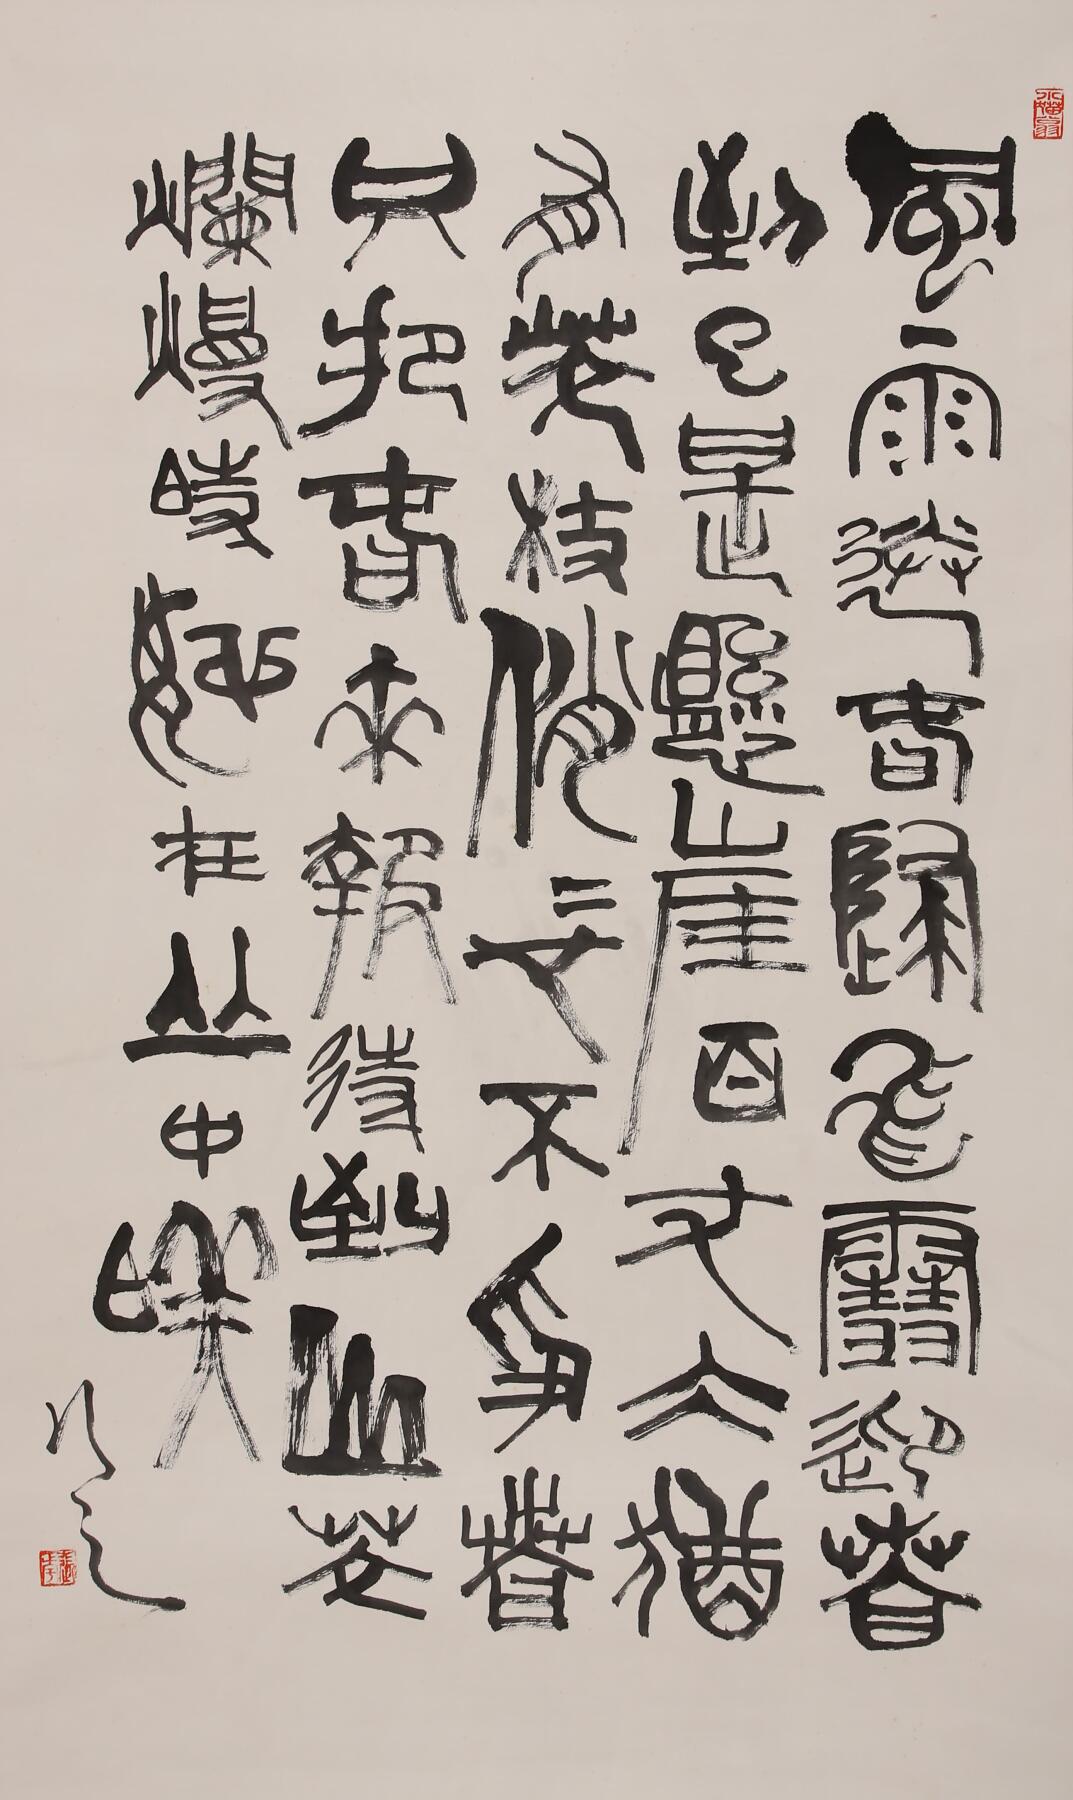 風雨送春歸飛雪迎春
到已是懸崖百丈冰猶
有花枝俏二也不爭春
只把春來報待到山花
爛熳時她在丛中咲